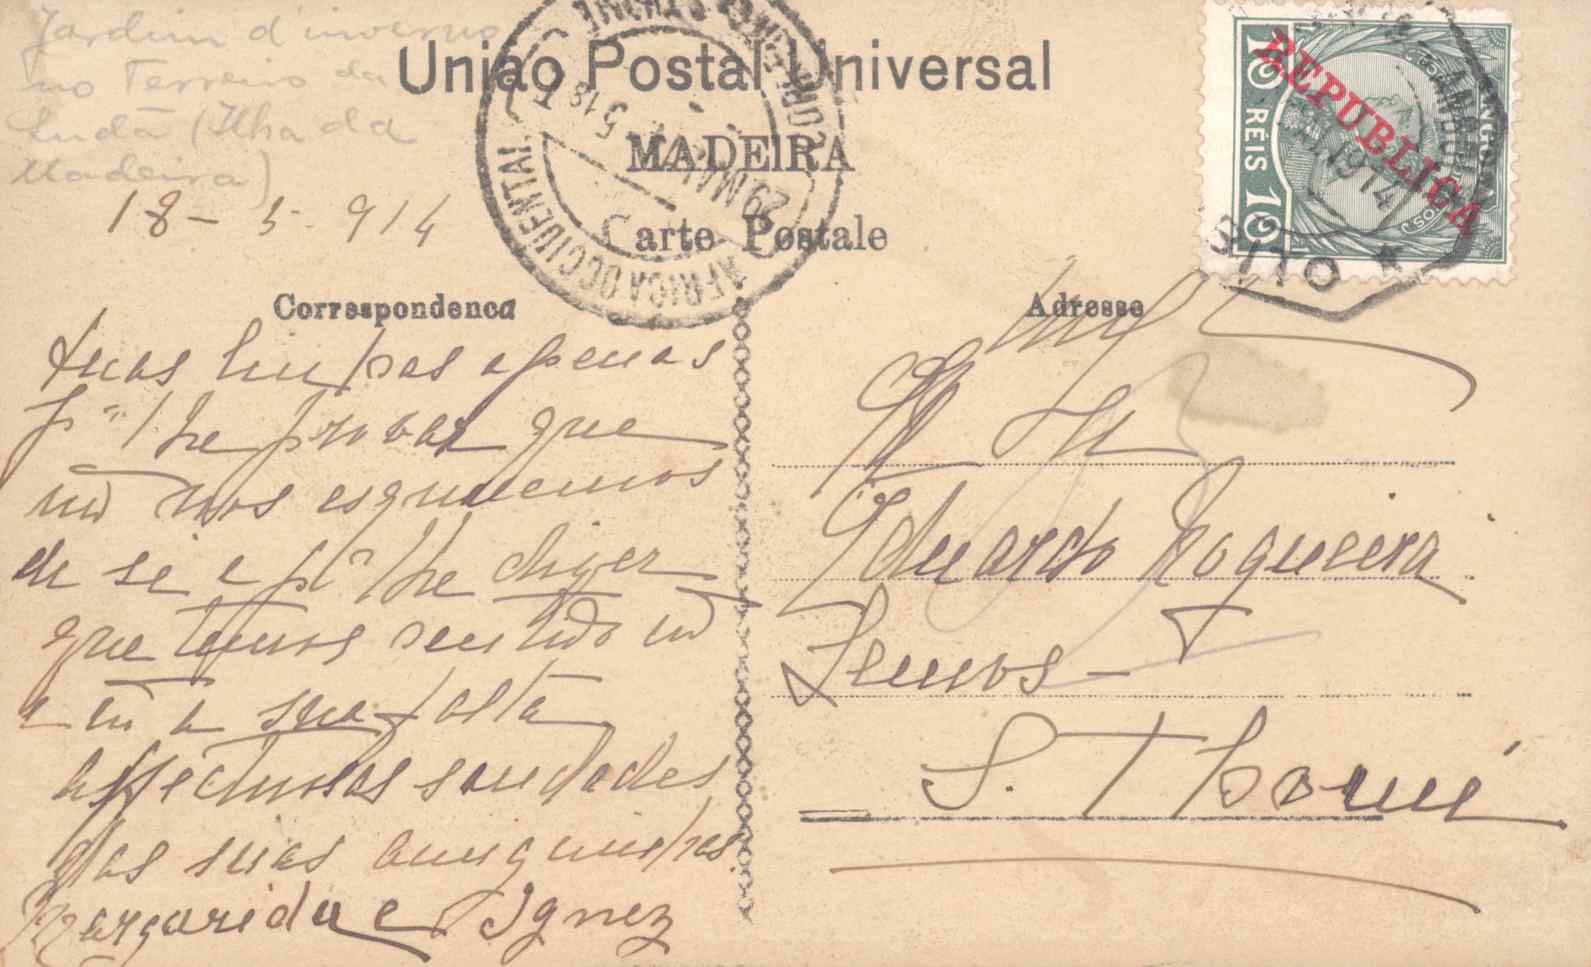 Jardim d'inverno
no Terreiro da
Lucta (Ilha da
Madeira)
União Postal Universal
MADEIRA
Carte Postale
AFRICA OCCIDENTAL
29 MAI
18-5-914
REPUBLICA
10 RÉIS 10
1914
Correspondenca
Adresse
duas linhas apenas
pª lhe provar que
não nos esquecemos
de si e pª lhe dizer
que temos sentido
a sua falta
affectuosas saudades
das suas amiguinhas
Margarida e Ignez
Eduardo Nogueira
Lemos
S. Thomé